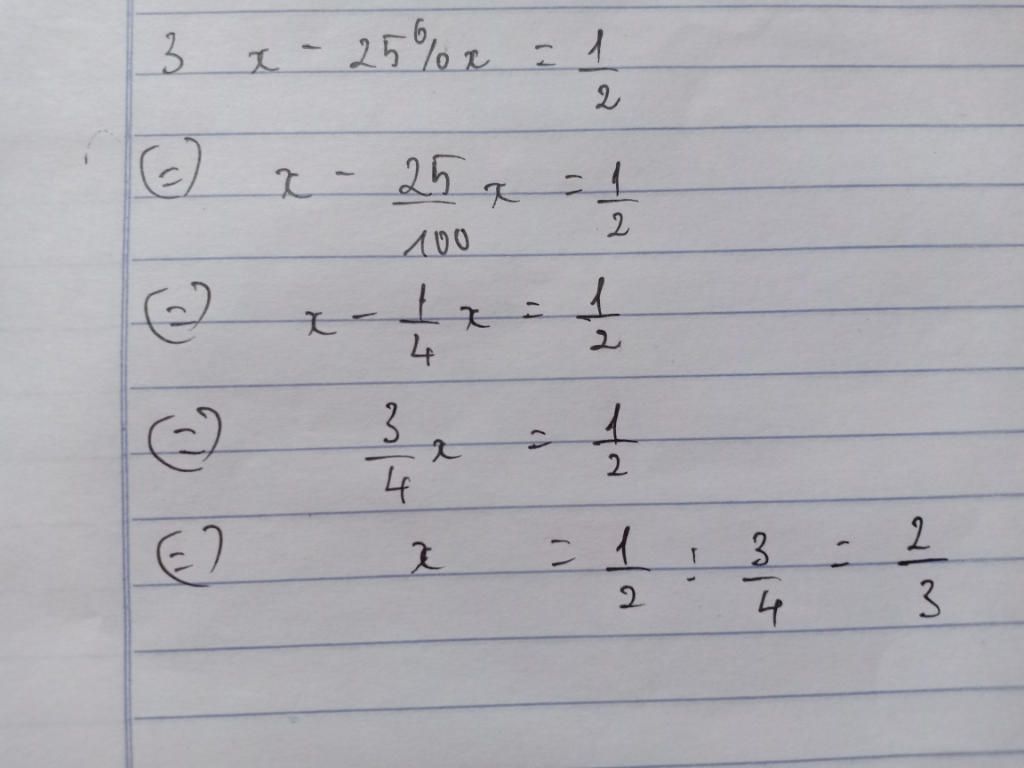 3 x - 25%x = 1/2
(=) x - 25/100 x = 1/2
(=) x - 1/4 x = 1/2
(=) 3/4 x = 1/2
(=) x = 1/2 : 3/4 = 2/3